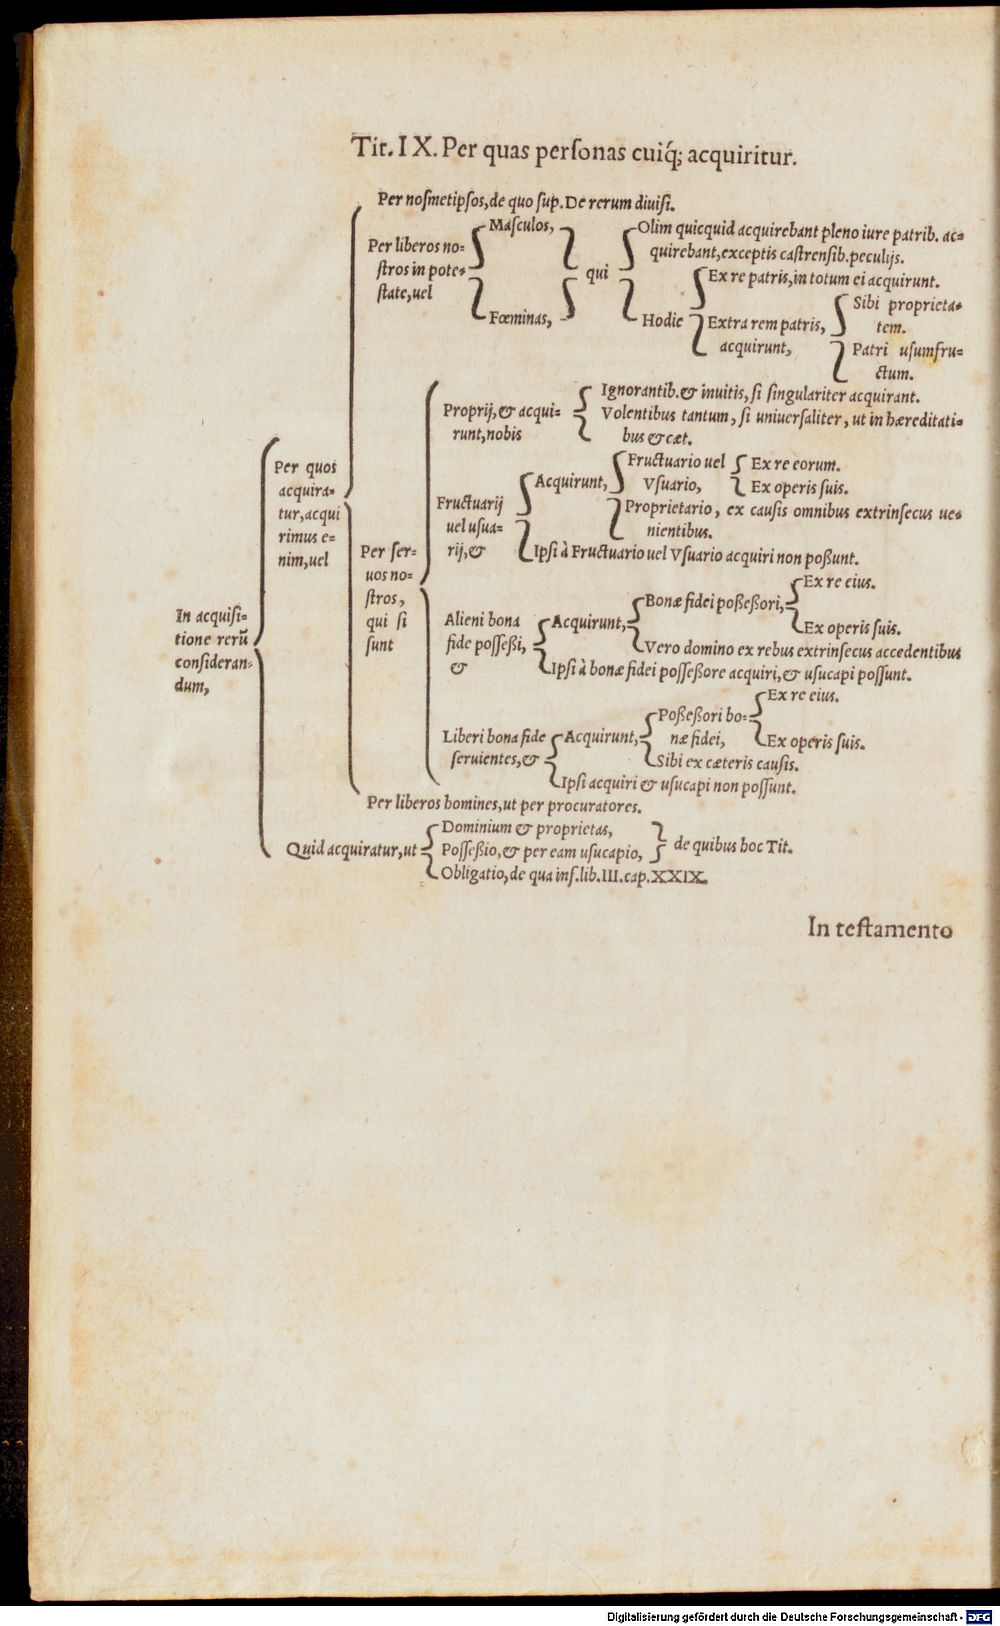 Tit. IX. Per quas personas cuiq́; acquiritur.
Per nosmetipsos, de quo sup. De rerum diuisi.
Per liberos no-
stros in pote-
state, uel
Masculos,
Fœminas,
qui
Olim quicquid acquirebant pleno iure patrib. ac-
quirebant, exceptis castrensib. peculijs.
Hodie
Ex re patris, in totum ei acquirunt.
Extra rem patris,
acquirunt,
Sibi proprieta-
tem.
Patri usumfru-
ctum.
Per quos
acquira-
tur, acqui
rimus e-
nim, uel
Per ser-
uos no-
stros,
qui si
sunt
Proprij, & acqui-
runt, nobis
Ignorantib. & inuitis, si singulariter acquirant.
Volentibus tantum, si uniuersaliter, ut in hæreditati-
bus & cæt.
Fructuarij
uel usua-
rij, &
Acquirunt,
Fructuario uel
Vsuario,
Ex re eorum.
Ex operis suis.
Proprietario, ex causis omnibus extrinsecus ue-
nientibus.
Ipsi à Fructuario uel Vsuario acquiri non possunt.
Alieni bona
fide possessi,
&
Acquirunt,
Bonæ fidei possessori,
Ex re eius.
Ex operis suis.
Vero domino ex rebus extrinsecus accedentibus
Ipsi à bonæ fidei possessore acquiri, & usucapi possunt.
Liberi bona fide
seruientes, &
Acquirunt,
Possessori bo-
næ fidei,
Ex re eius.
Ex operis suis.
Sibi ex cæteris causis.
Ipsi acquiri & usucapi non possunt.
Per liberos homines, ut per procuratores.
In acquisi-
tione rerū
consideran-
dum,
Quid acquiratur, ut
Dominium & proprietas,
Possessio, & per eam usucapio,
de quibus hoc Tit.
Obligatio, de qua inf. lib. III. cap. XXIX.
In testamento
Digitalisierung gefördert durch die Deutsche Forschungsgemeinschaft - DFG